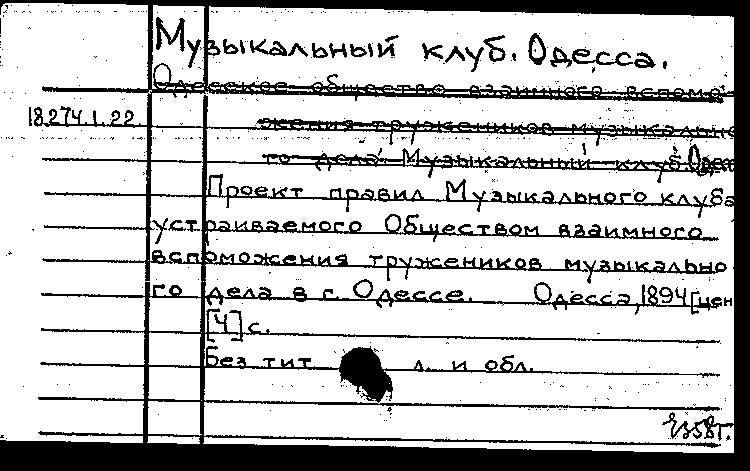 Музыкальный клуб. Одесса.
Одесское общество взаимного вспомо-
18.274.1.22
жения тружеников музыкально
го дела. Музыкальный клуб. Одесс
Проект правил Музыкального клуба
устраиваемого Обществом взаимного
вспоможения тружеников музыкально
го дела в г. Одессе. Одесса, 1894 [цен
[4] с.
Без тит л. и обл.